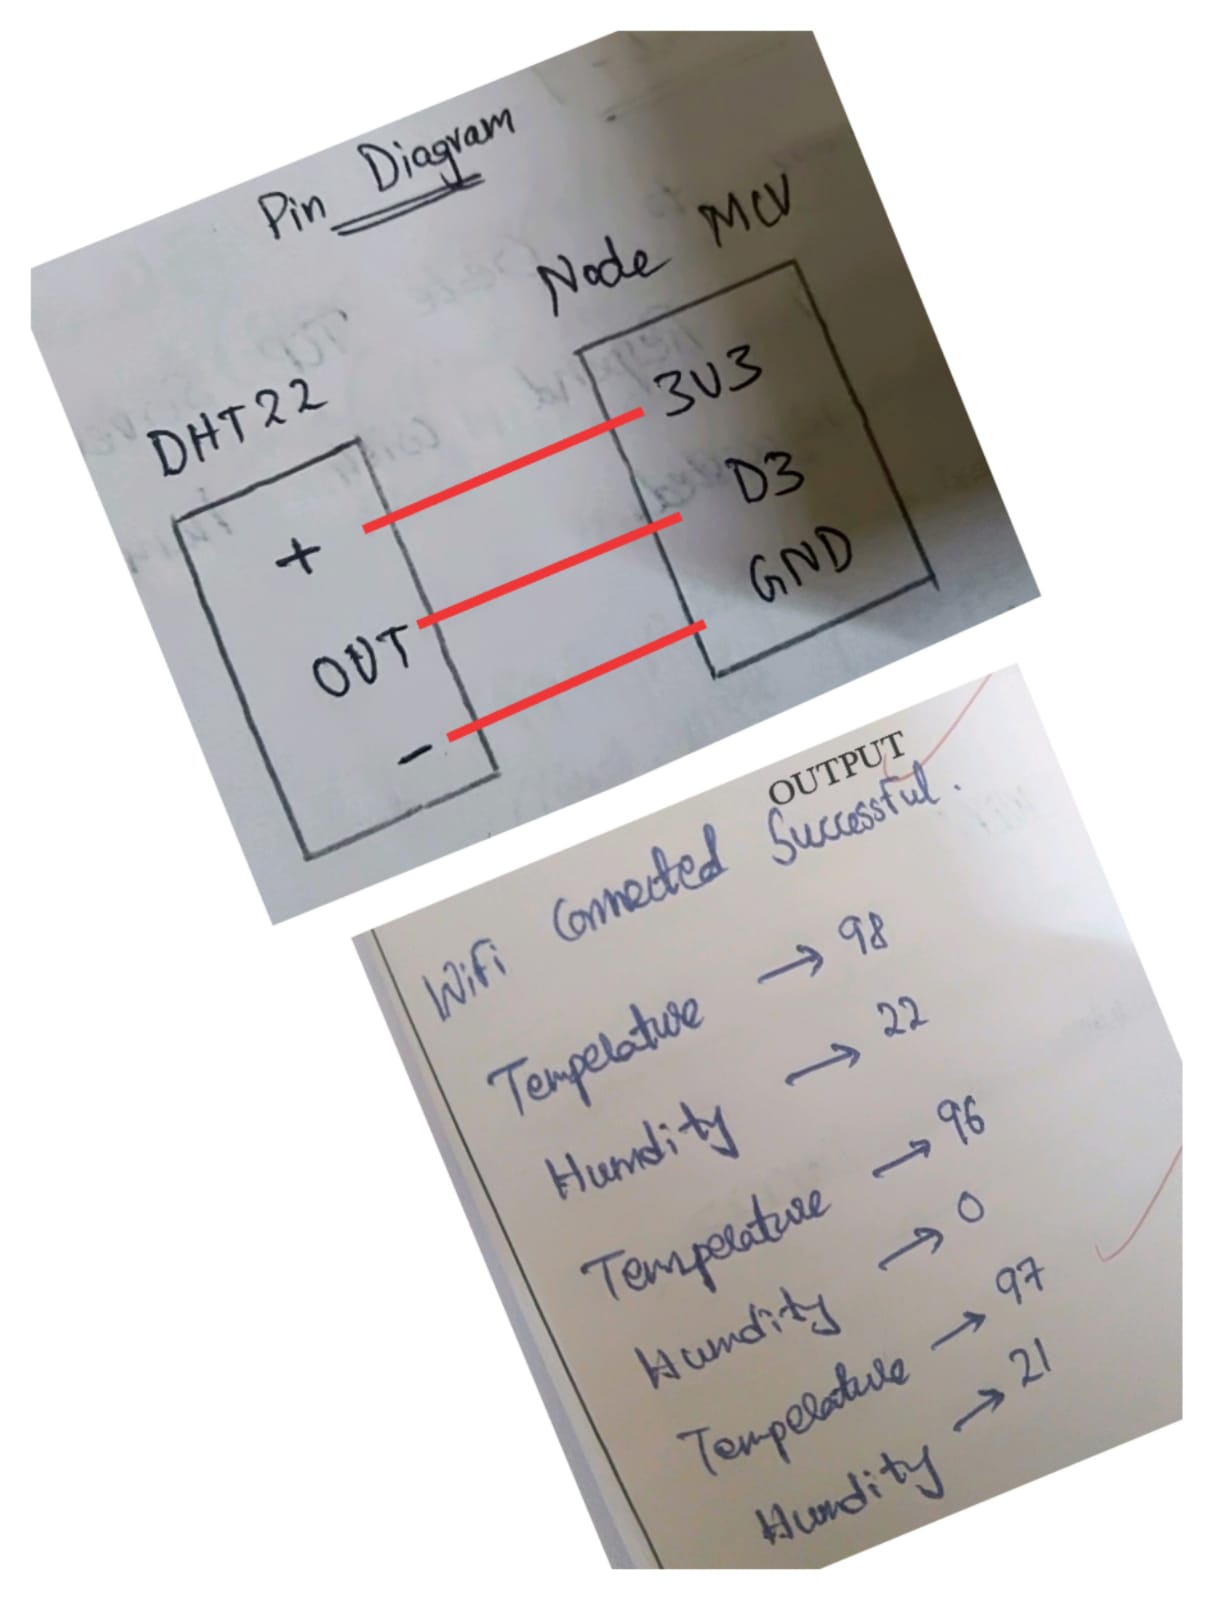 Pin Diagram
DHT22
+
OUT
-
Node MCU
3V3
D3
GND
OUTPUT
WiFi Connected Successful.
Temperature → 98
Humdity → 22
Temperature → 96
Humdity → 0
Temperature → 97
Humdity → 21